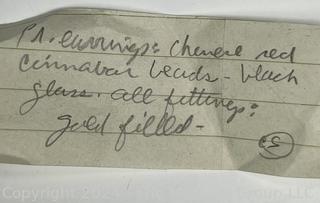 Pr. earrings: Chinese red
Cinnabar beads - black
glass. all fittings:
gold filled -
Copyright
Group LLC